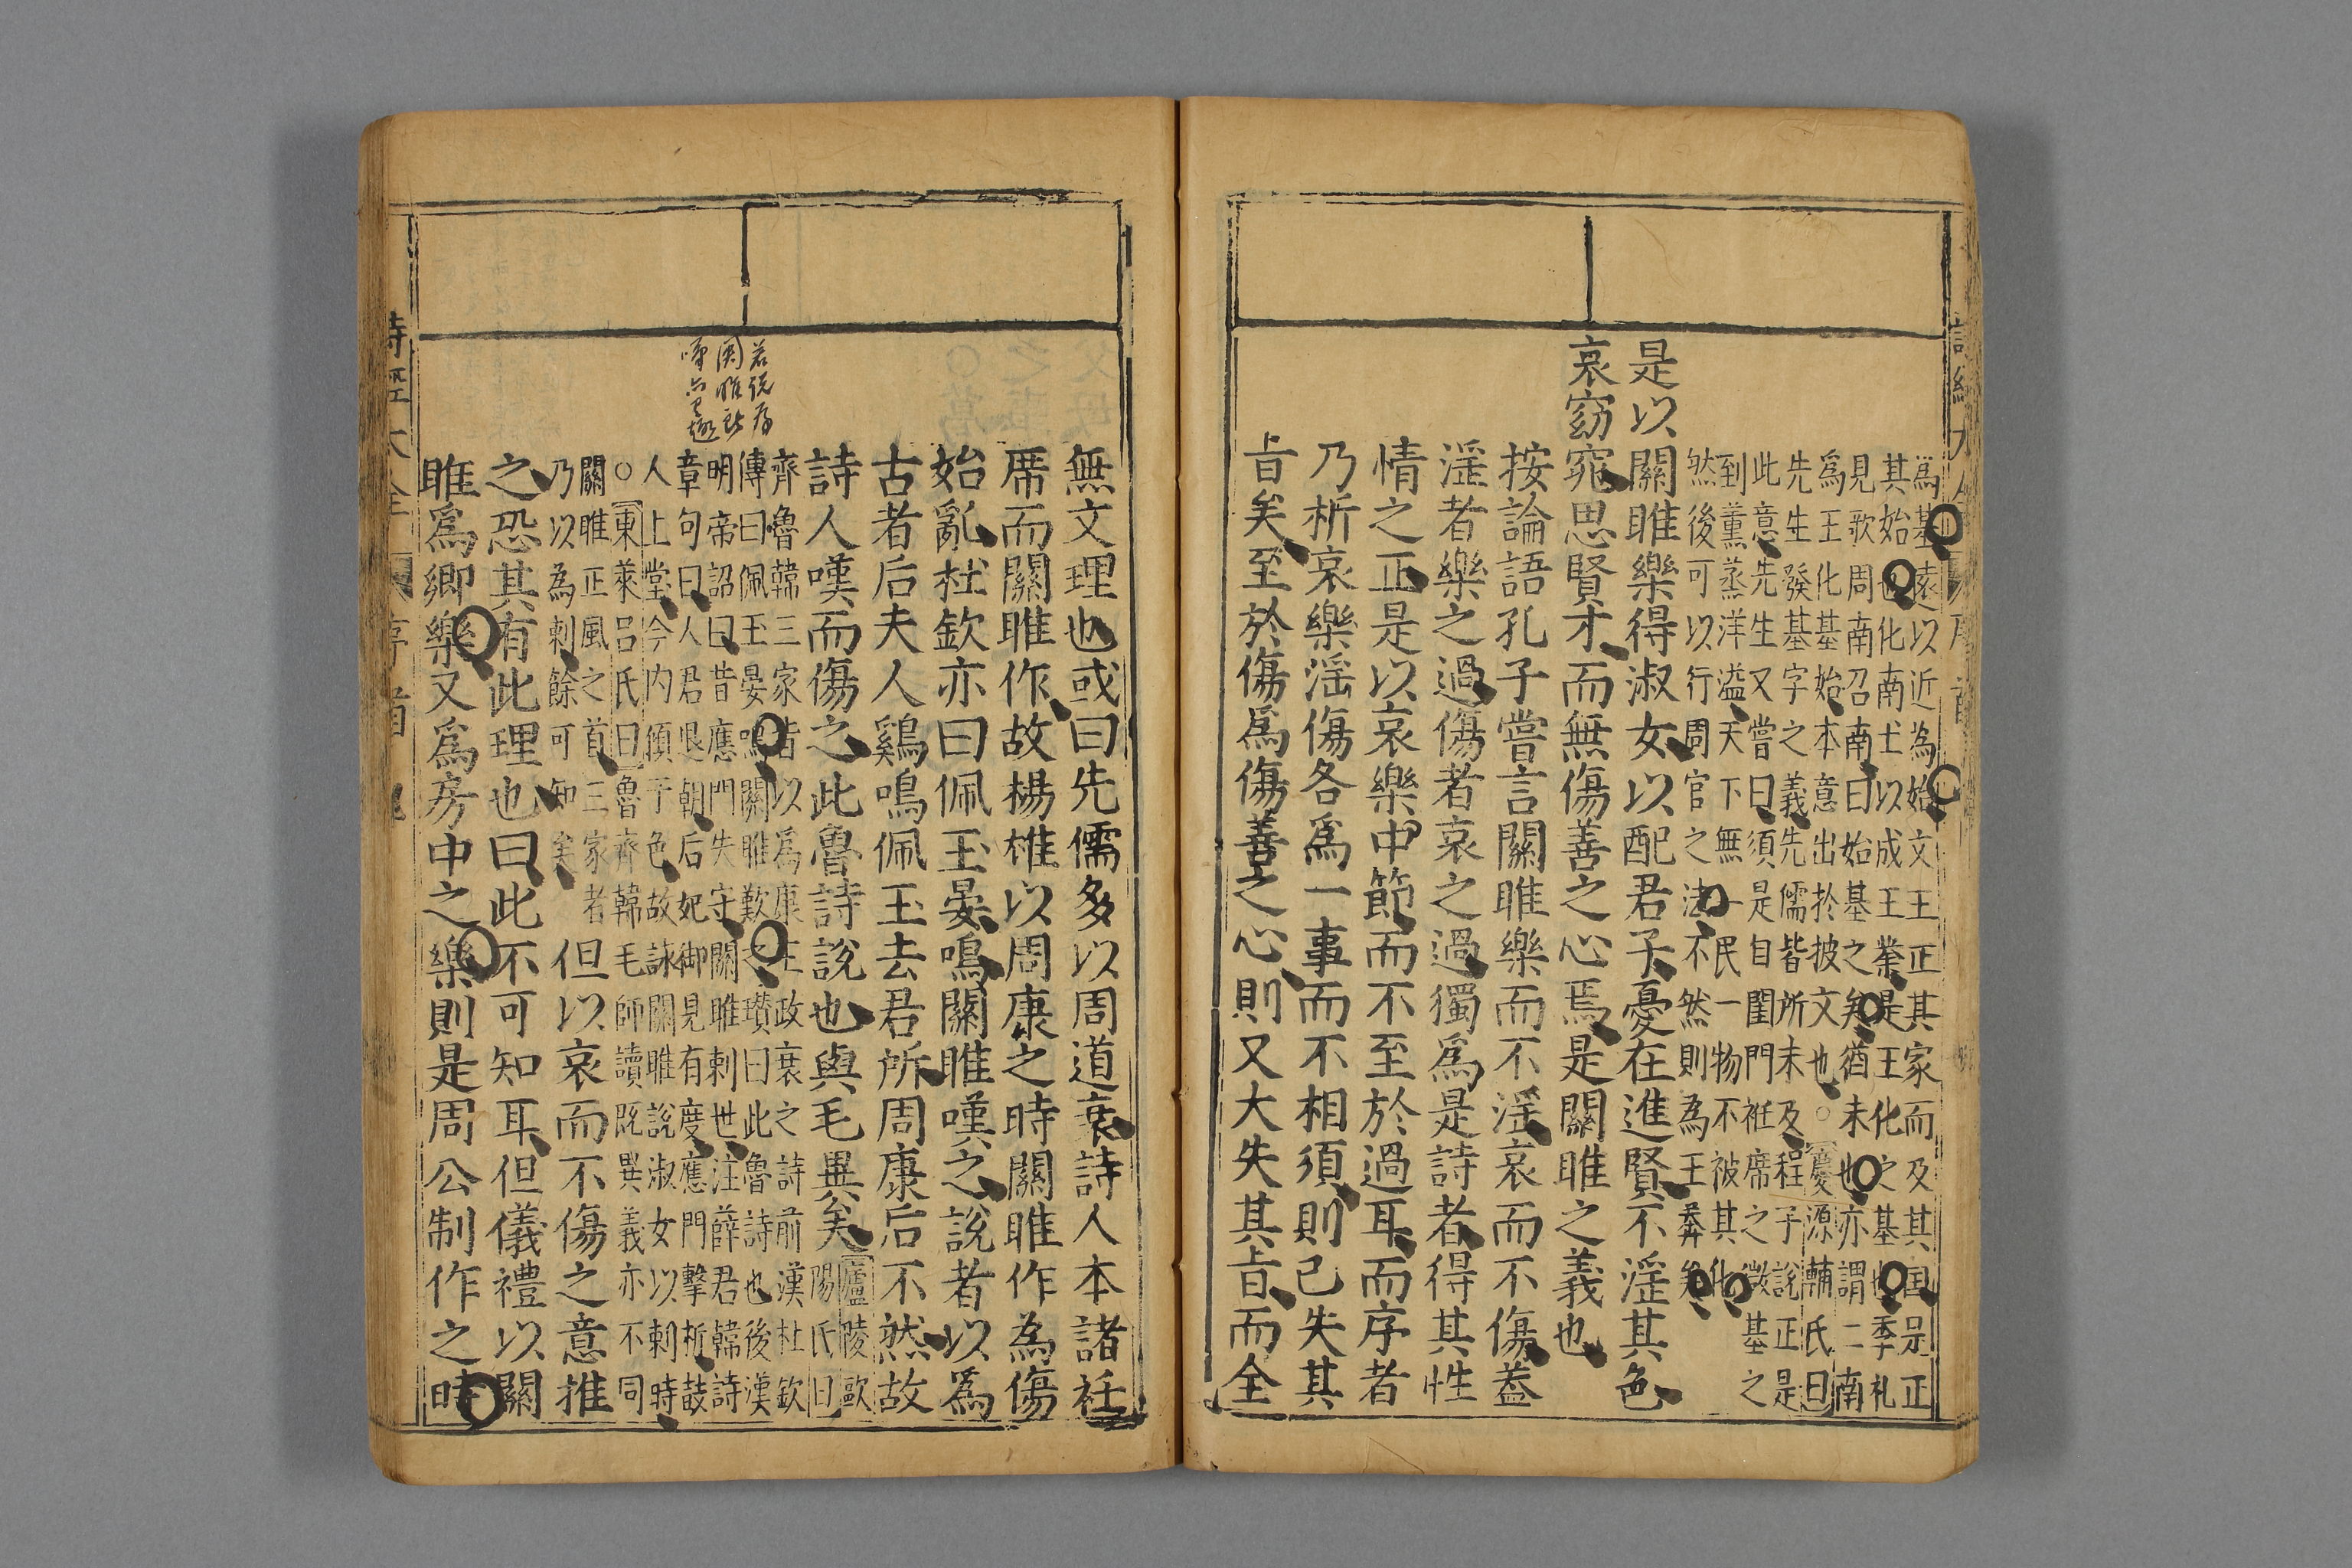 爲基遠以近為始文王正其家而及其国是正
其始也化南土以成王業是王化之基也季札
見歌周南召南曰始基之矣猶未也亦謂二南
爲王化基始本意出於披文也○慶源輔氏曰
先生發基字之義先儒皆所未及程子説正是
此意先生又嘗曰須是自閨門袵席之微基之
到薰蒸洋溢天下無一民一物不被其化
然後可以行周官之法不然則為王莽矣
是以關雎樂得淑女以配君子憂在進賢不淫其色
哀窈窕思賢才而無傷善之心焉是關雎之義也
按論語孔子嘗言關雎樂而不淫哀而不傷蓋
淫者樂之過傷者哀之過獨爲是詩者得其性
情之正是以哀樂中節而不至於過耳而序者
乃析哀樂淫傷各爲一事而不相須則已失其
旨矣至於傷爲傷善之心則又大失其旨而全
無文理也或曰先儒多以周道衰詩人本諸衽
席而關雎作故楊雄以周康之時關雎作為傷
始亂杜欽亦曰佩玉晏鳴關雎嘆之說者以爲
古者后夫人鷄鳴佩玉去君所周康后不然故
詩人嘆而傷之此魯詩說也與毛異矣廬陵歐
陽氏曰
齊魯韓三家皆以爲康王政衰之詩前漢杜欽
傳曰佩玉晏鳴關雎歎之瓚曰此魯詩也後漢
明帝詔曰昔應門失守關雎刺世注薛君韓詩
章句曰人君退朝后妃御見有度應門擊柝鼓
人上堂今内傾于色故詠關雎說淑女以刺時
○東萊呂氏曰魯齊韓毛師讀既異義亦不同
關雎正風之首三家者
乃以為刺餘可知矣
但以哀而不傷之意推
之恐其有此理也曰此不可知耳但儀禮以關
雎爲卿樂又爲房中之樂則是周公制作之時